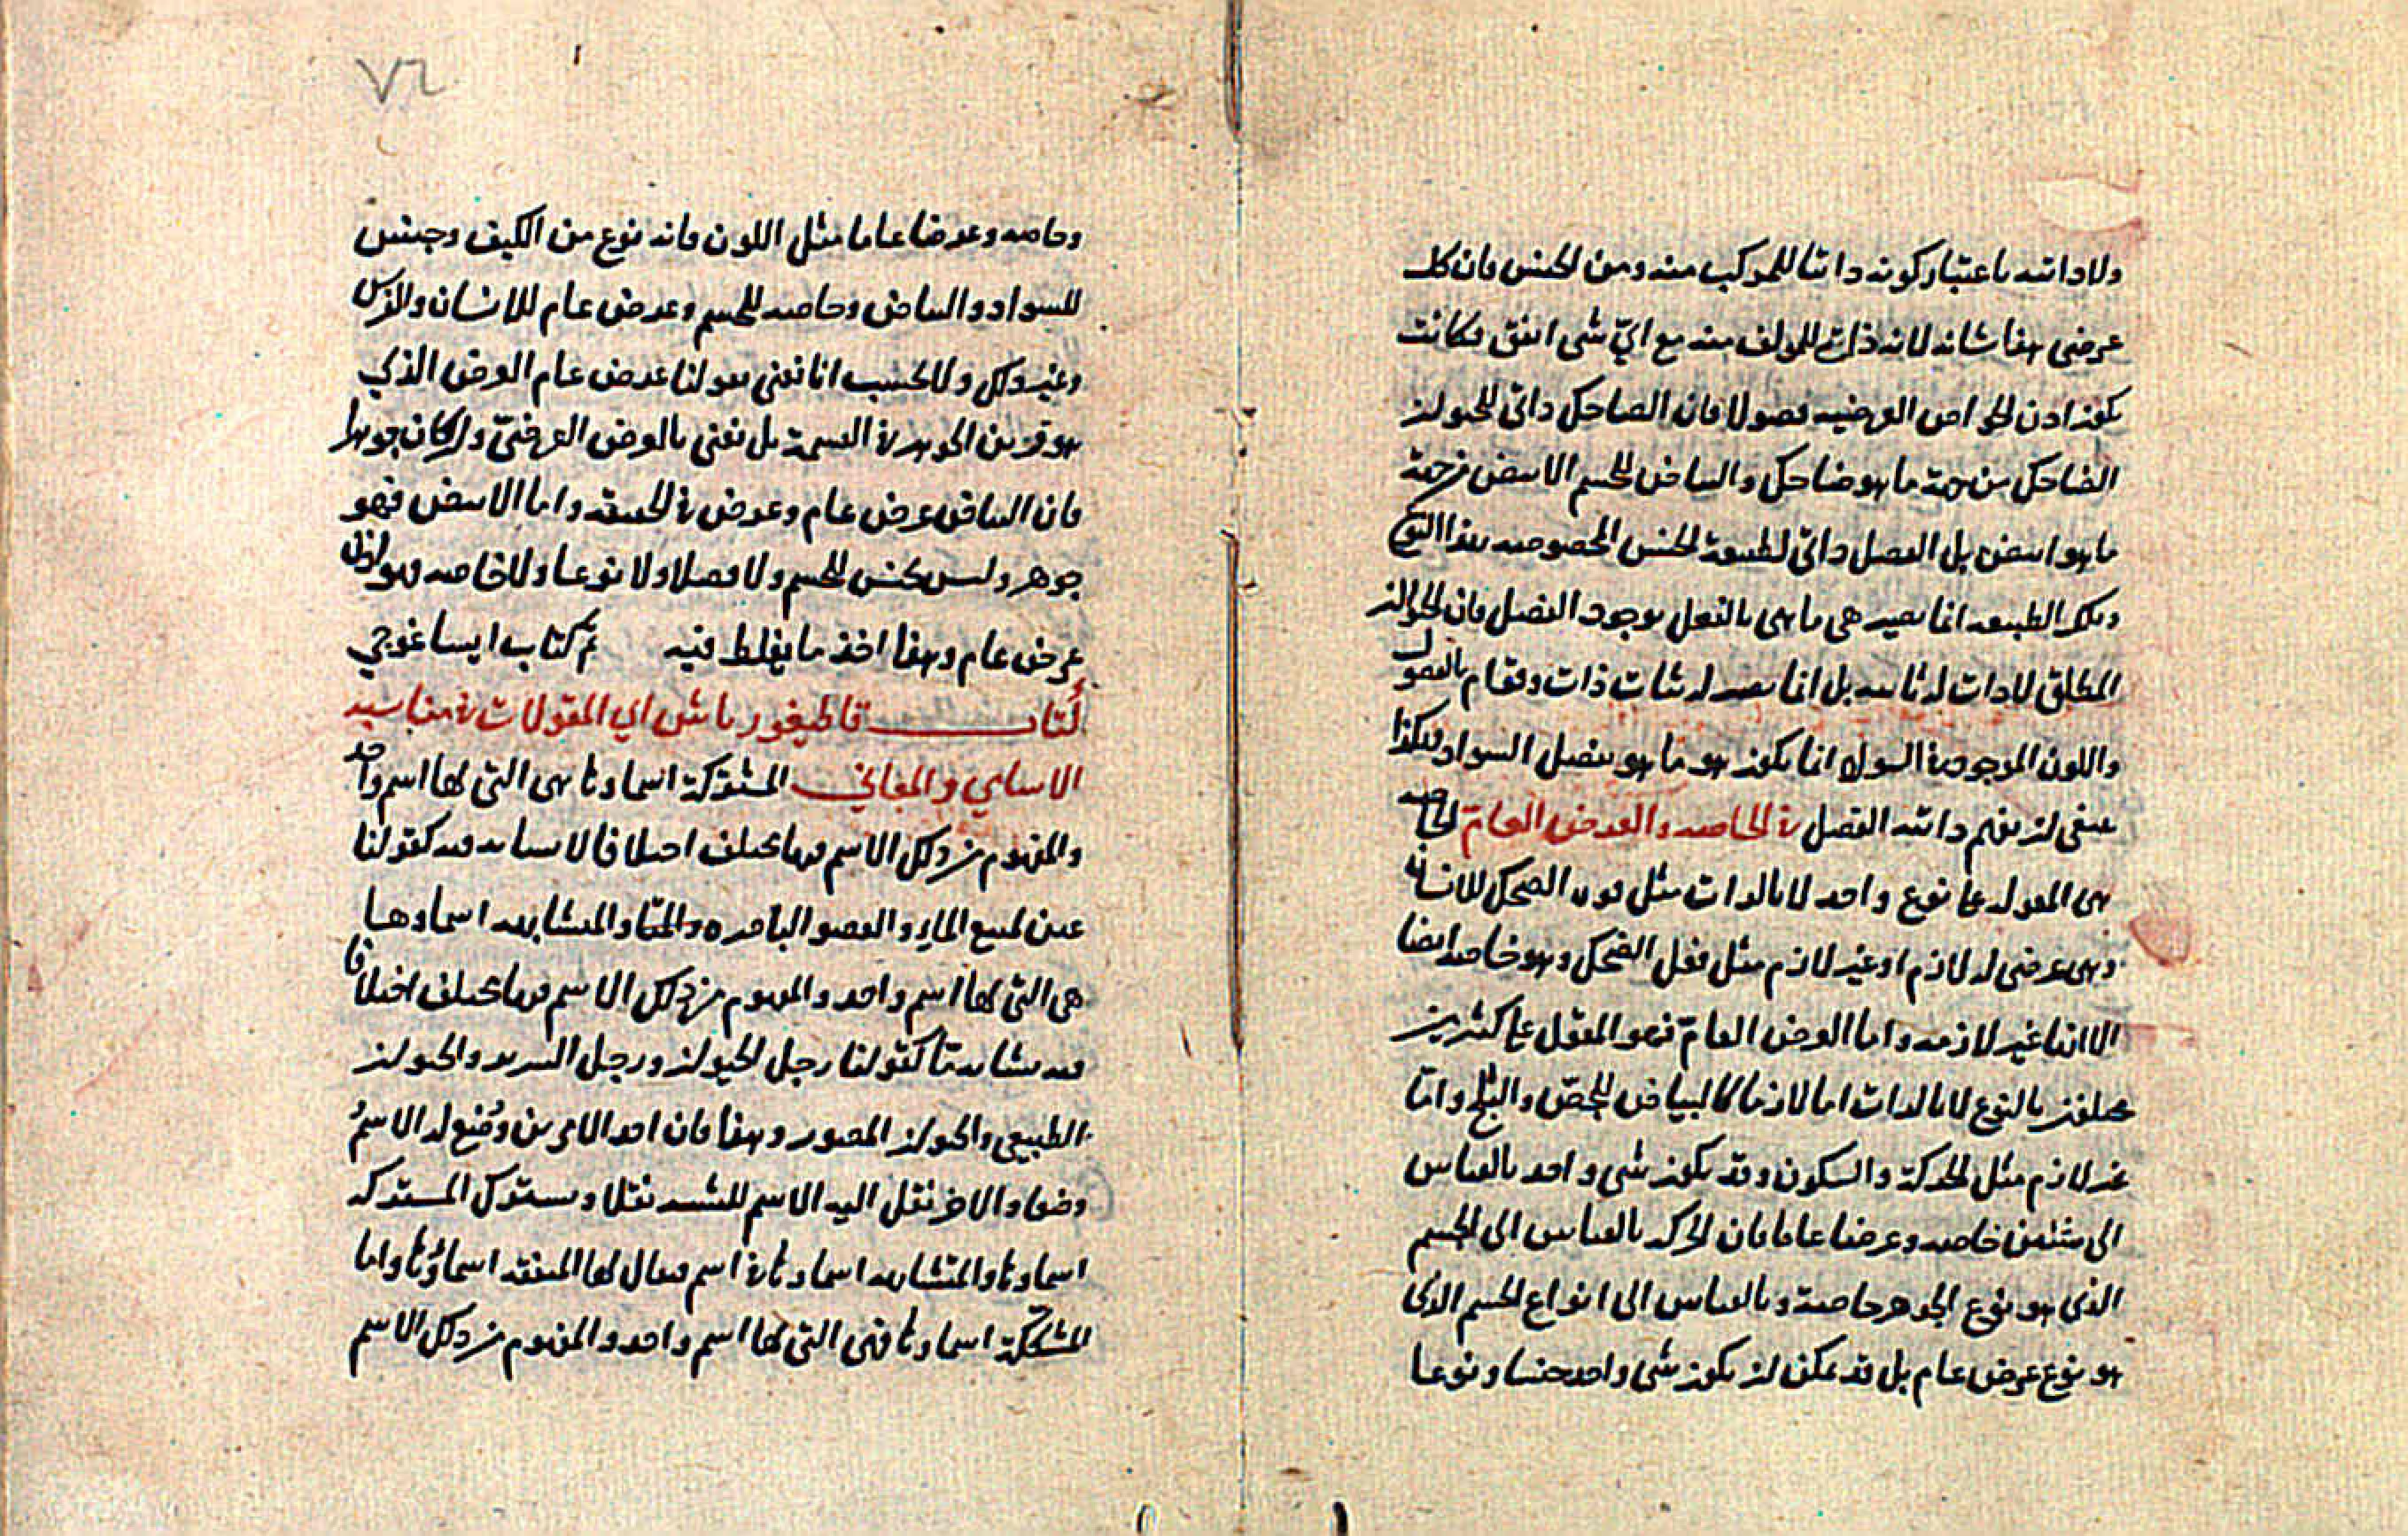 ولا ذاتية باعتبار كونه ذاتيا للمركب منه ومن الجنس فان كل
عرضي هذا شانه لانه ذاتي للمولف منه مع اي شي اتفق فكانت
يكون اذن الخواص العرضية فصولا فان الضاحك ذاتي للحيوان
الضاحك من جهة ما هو ضاحك والبياض للجسم الابيض من جهة
ما هو ابيض بل الفصل ذاتي لطبيعة الجنس المخصوصة بهذا النوع
وتلك الطبيعة انما تصير هي ما هي بالفعل بوجود الفصل فان الحيوان
المطلق لا ذات له ثابتة بل انما يصير له ثبات ذات وقوام بالفصول
واللون الموجود في السواد انما يكون هو ما هو بفصل السواد فهكذا
ينبغي ان نفهم ذاتية الفصل في الخاصة والعرض العام الخاصة
هي المقولة على نوع واحد لا بالذات مثل قوة الضحك للانسان
وهي عرضي له لازم او غير لازم مثل فعل الضحك وهو خاصة ايضا
الا انها غير لازمة واما العرض العام فهو المقول على كثيرين
مختلفين بالنوع لا بالذات اما لازما كالبياض للجص والثلج واما
غير لازم مثل الحركة والسكون وقد يكون شي واحد بالقياس
الى شيئين خاصة وعرضا عاما فان الحركة بالقياس الى الجسم
الذي هو نوع الجوهر خاصة وبالقياس الى انواع الجسم الذي
هو نوع عرض عام بل قد يمكن ان يكون شي واحد جنسا ونوعا
٧٢
وخاصة وعرضا عاما مثل اللون فانه نوع من الكيف وجنس
للسواد والبياض وخاصة للجسم وعرض عام للانسان والفرس
وغير ذلك ولا تحسب انا نعني بقولنا عرض عام العرض الذي
هو قرين الجوهر في القسمة بل نعني بالعرض العرضي وان كان جوهرا
فان البياض عرض عام وعرض في الحقيقة واما الابيض فهو
جوهر وليس كجنس للجسم ولا فصلا ولا نوعا ولا خاصة فهو اذن
عرض عام وهذا اخذ ما يغلط فيه تم كتاب ايساغوجي
كتاب قاطيغورياس اي المقولات في مناسبة
الاسامي والمعاني المشتركة اسماوها هي التي لها اسم واحد
والمفهوم من ذلك الاسم فيها مختلف اختلافا لا تشابه فيه كقولنا
عين لمنبع الماء والعضو الباصرة والمتشابهة اسماوها
هي التي لها اسم واحد والمفهوم من ذلك الاسم فيها مختلف اختلافا
فيه مشابهة ما كقولنا رجل الحيوان ورجل السرير والحيوان
الطبيعي والحيوان المصور وهذا فان احد الامرين وضع له الاسم
وضعا والاخر نقل اليه الاسم للشبه نقلا وتشترك المشتركة
اسماوها والمتشابهة اسماوها في اسم فيقال لها المتفقة اسماؤها واما
المشككة اسماوها فهي التي لها اسم واحد والمفهوم من ذلك الاسم